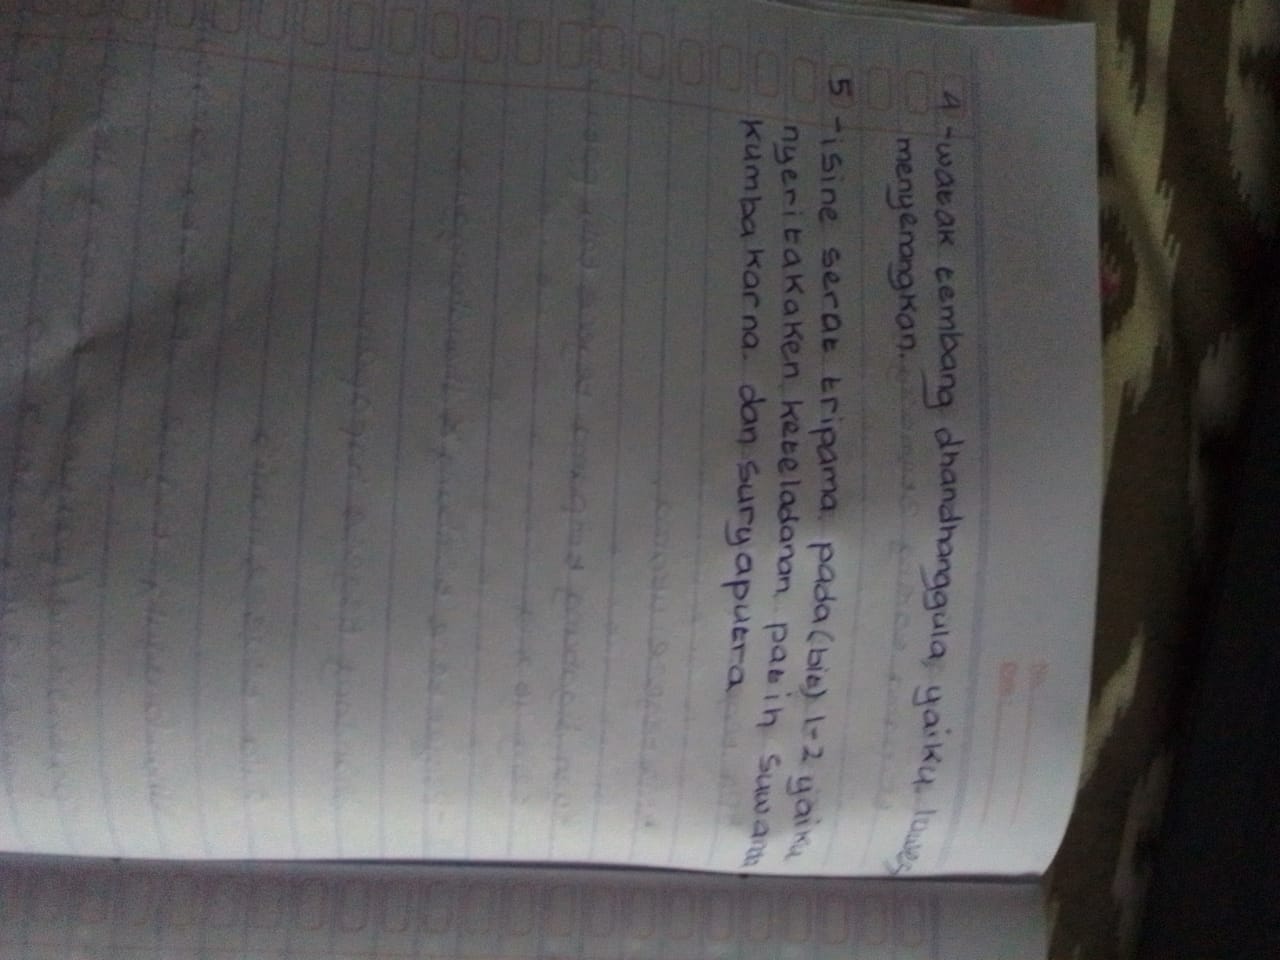 4 -watak tembang dhandhanggula, yaiku luwes
menyenangkan.
5 -isine serat tripama pada (bit) 1-2 yaiku
nyeritakaken keteladanan patih suwanda,
kumbakarna dan suryaputra